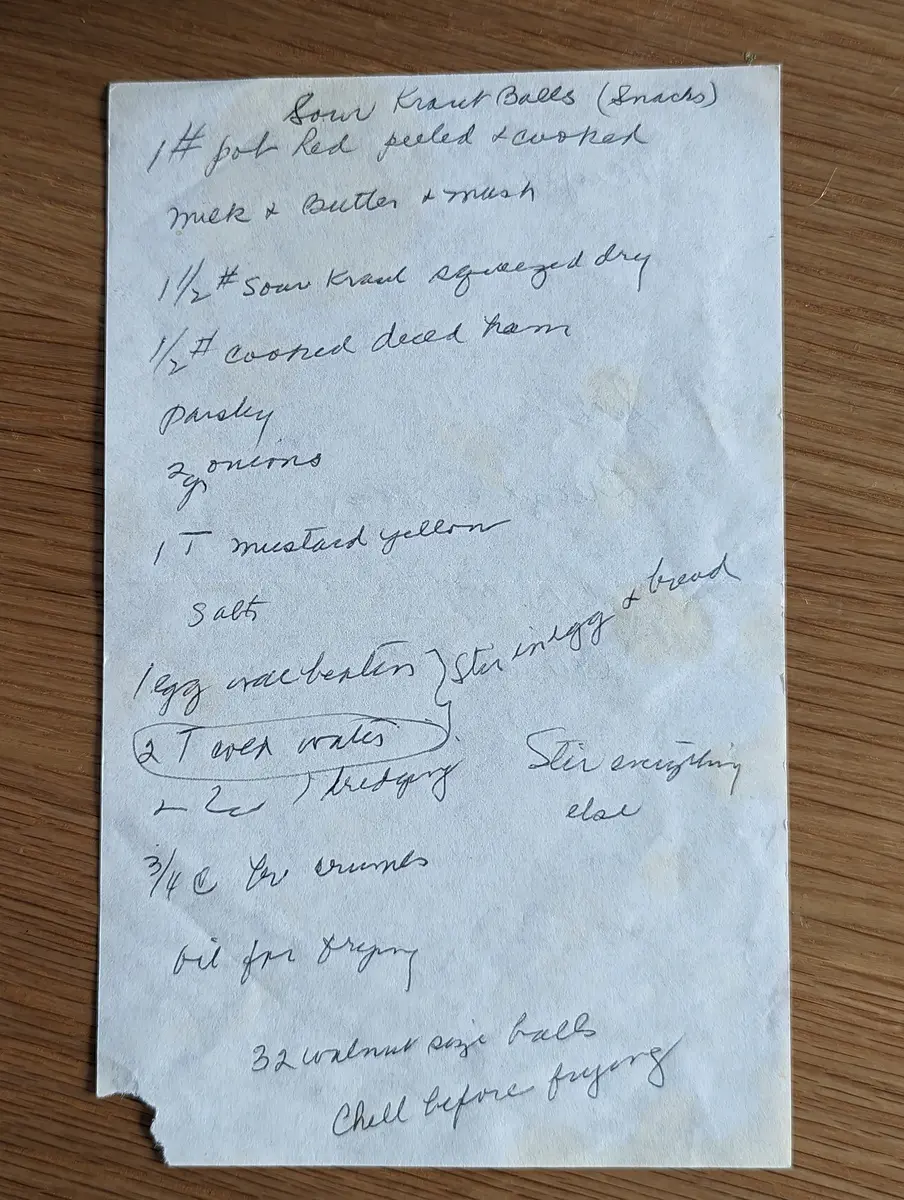 Sour Kraut Balls (Snacks)
1 # pot Red peeled & cooked
milk & Butter & mash
1 1/2 # Sour Kraut squeezed dry
1/2 # cooked diced ham
Parsley
2 onions
1 T mustard yellow
Salt
1 egg beaten } Stir in egg & bread
2 T water
dredging
Stir everything
else
3/4 C br crumbs
oil for frying
32 walnut size balls
Chill before frying